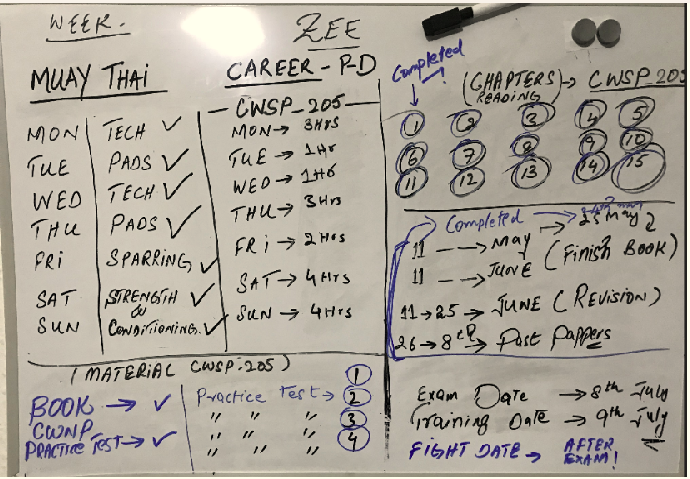 WEEK.
ZEE
MUAY THAI
MON TECH ✓
TUE PADS ✓
WED TECH ✓
THU PADS ✓
FRI SPARRING ✓
SAT STRENGTH ✓
&
SUN CONDITIONING. ✓
CAREER - P-D
CWSP_205
MON → 3Hrs
TUE → 1Hr
WED → 1Hr
THU → 3Hrs
FRI → 2Hrs
SAT → 4Hrs
SUN → 4Hrs
Completed
(CHAPTERS READING) → CWSP_205
1 2 3 4 5
6 7 8 9 10
11 12 13 14 15
Completed → 25th May
11 → May (Finish BOOK)
11 → JUNE
11 → 25 → JUNE (REVISION)
26 → 8th → Past Pappers
(MATERIAL CWSP-205)
BOOK → ✓
CWNP
PRACTICE TEST → ✓
Practice Test → 1
2
" " " 3
" " " 4
Exam Date → 8th July
Training Date → 9th July
FIGHT DATE → AFTER EXAM!